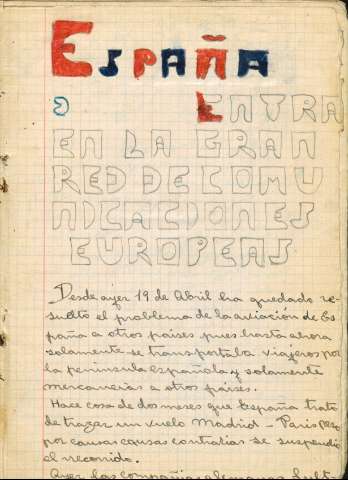 ESPAÑA
ENTRA
EN LA GRAN
RED DE COMU
NICACIONES
EUROPEAS
Desde ayer 19 de Abril ha quedado re-
suelto el problema de la aviación de Es-
paña a otros paises pues hasta ahora
solamente se transportaba viajeros por
la peninsula española y solamente
mercancias a otros paises.
Hace cosa de dos meses que España trato
de trazar un vuelo Madrid - Paris pero
por causar causas contrarias se suspendio
el recorrido.
Ayer las compañias alemanas Luft-